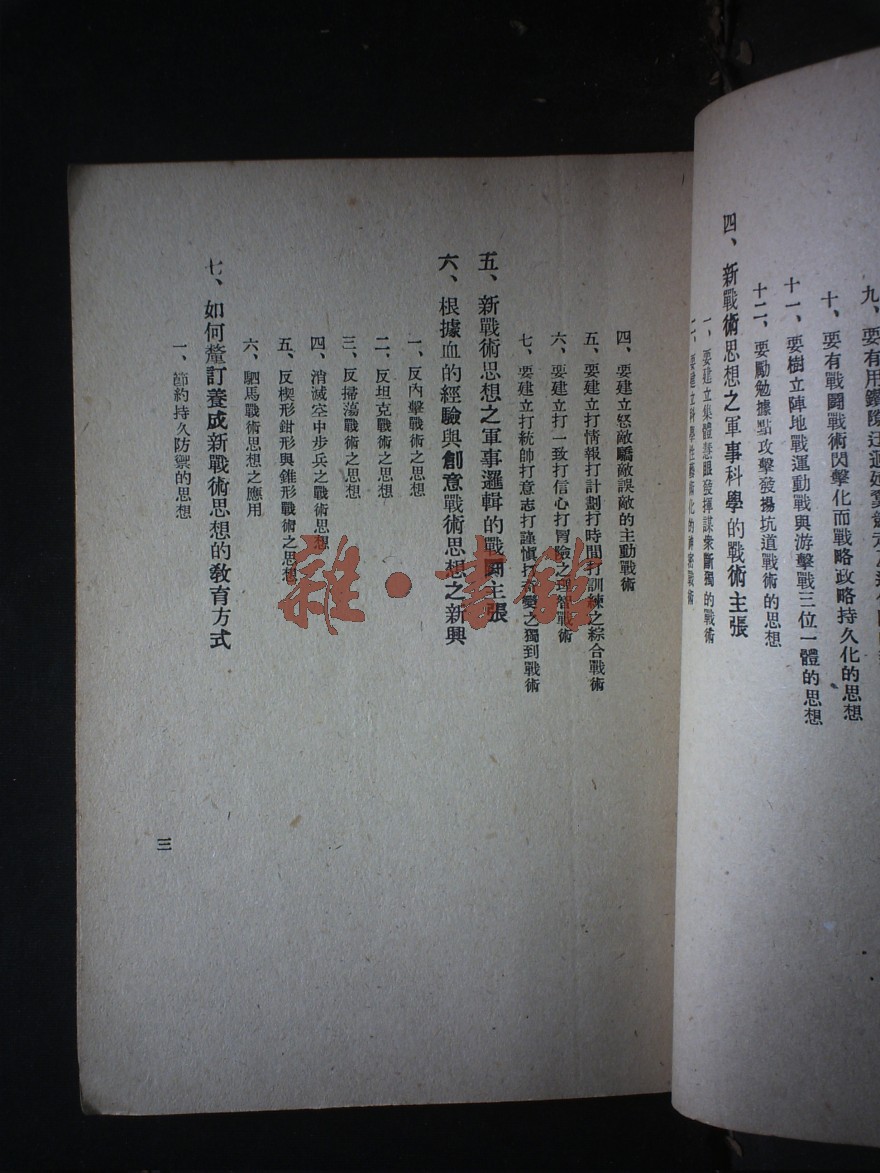 十、要有戰鬪戰術閃擊化而戰略政略持久化的思想
十一、要樹立陣地戰運動戰與游擊戰三位一體的思想
十二、要勵勉據點攻擊發揚坑道戰術的思想
四、新戰術思想之軍事科學的戰術主張
一、要建立集體慧眼發揮謀衆斷獨的戰術
二、要建立科學性藝術化的神密戰術
四、要建立怒敵驕敵誤敵的主動戰術
五、要建立打情報打計劃打時間打訓練之綜合戰術
六、要建立打一致打信心打冒險之理智戰術
七、要建立打統帥打意志打謹慎打奇變之獨到戰術
五、新戰術思想之軍事邏輯的戰鬪主張
六、根據血的經驗與創意戰術思想之新興
一、反內擊戰術之思想
二、反坦克戰術之思想
三、反掃蕩戰術之思想
四、消滅空中步兵之戰術思想
五、反楔形鉗形與錐形戰術之思想
六、駟馬戰術思想之應用
七、如何釐訂養成新戰術思想的敎育方式
一、節約持久防禦的思想
三
雜·書館